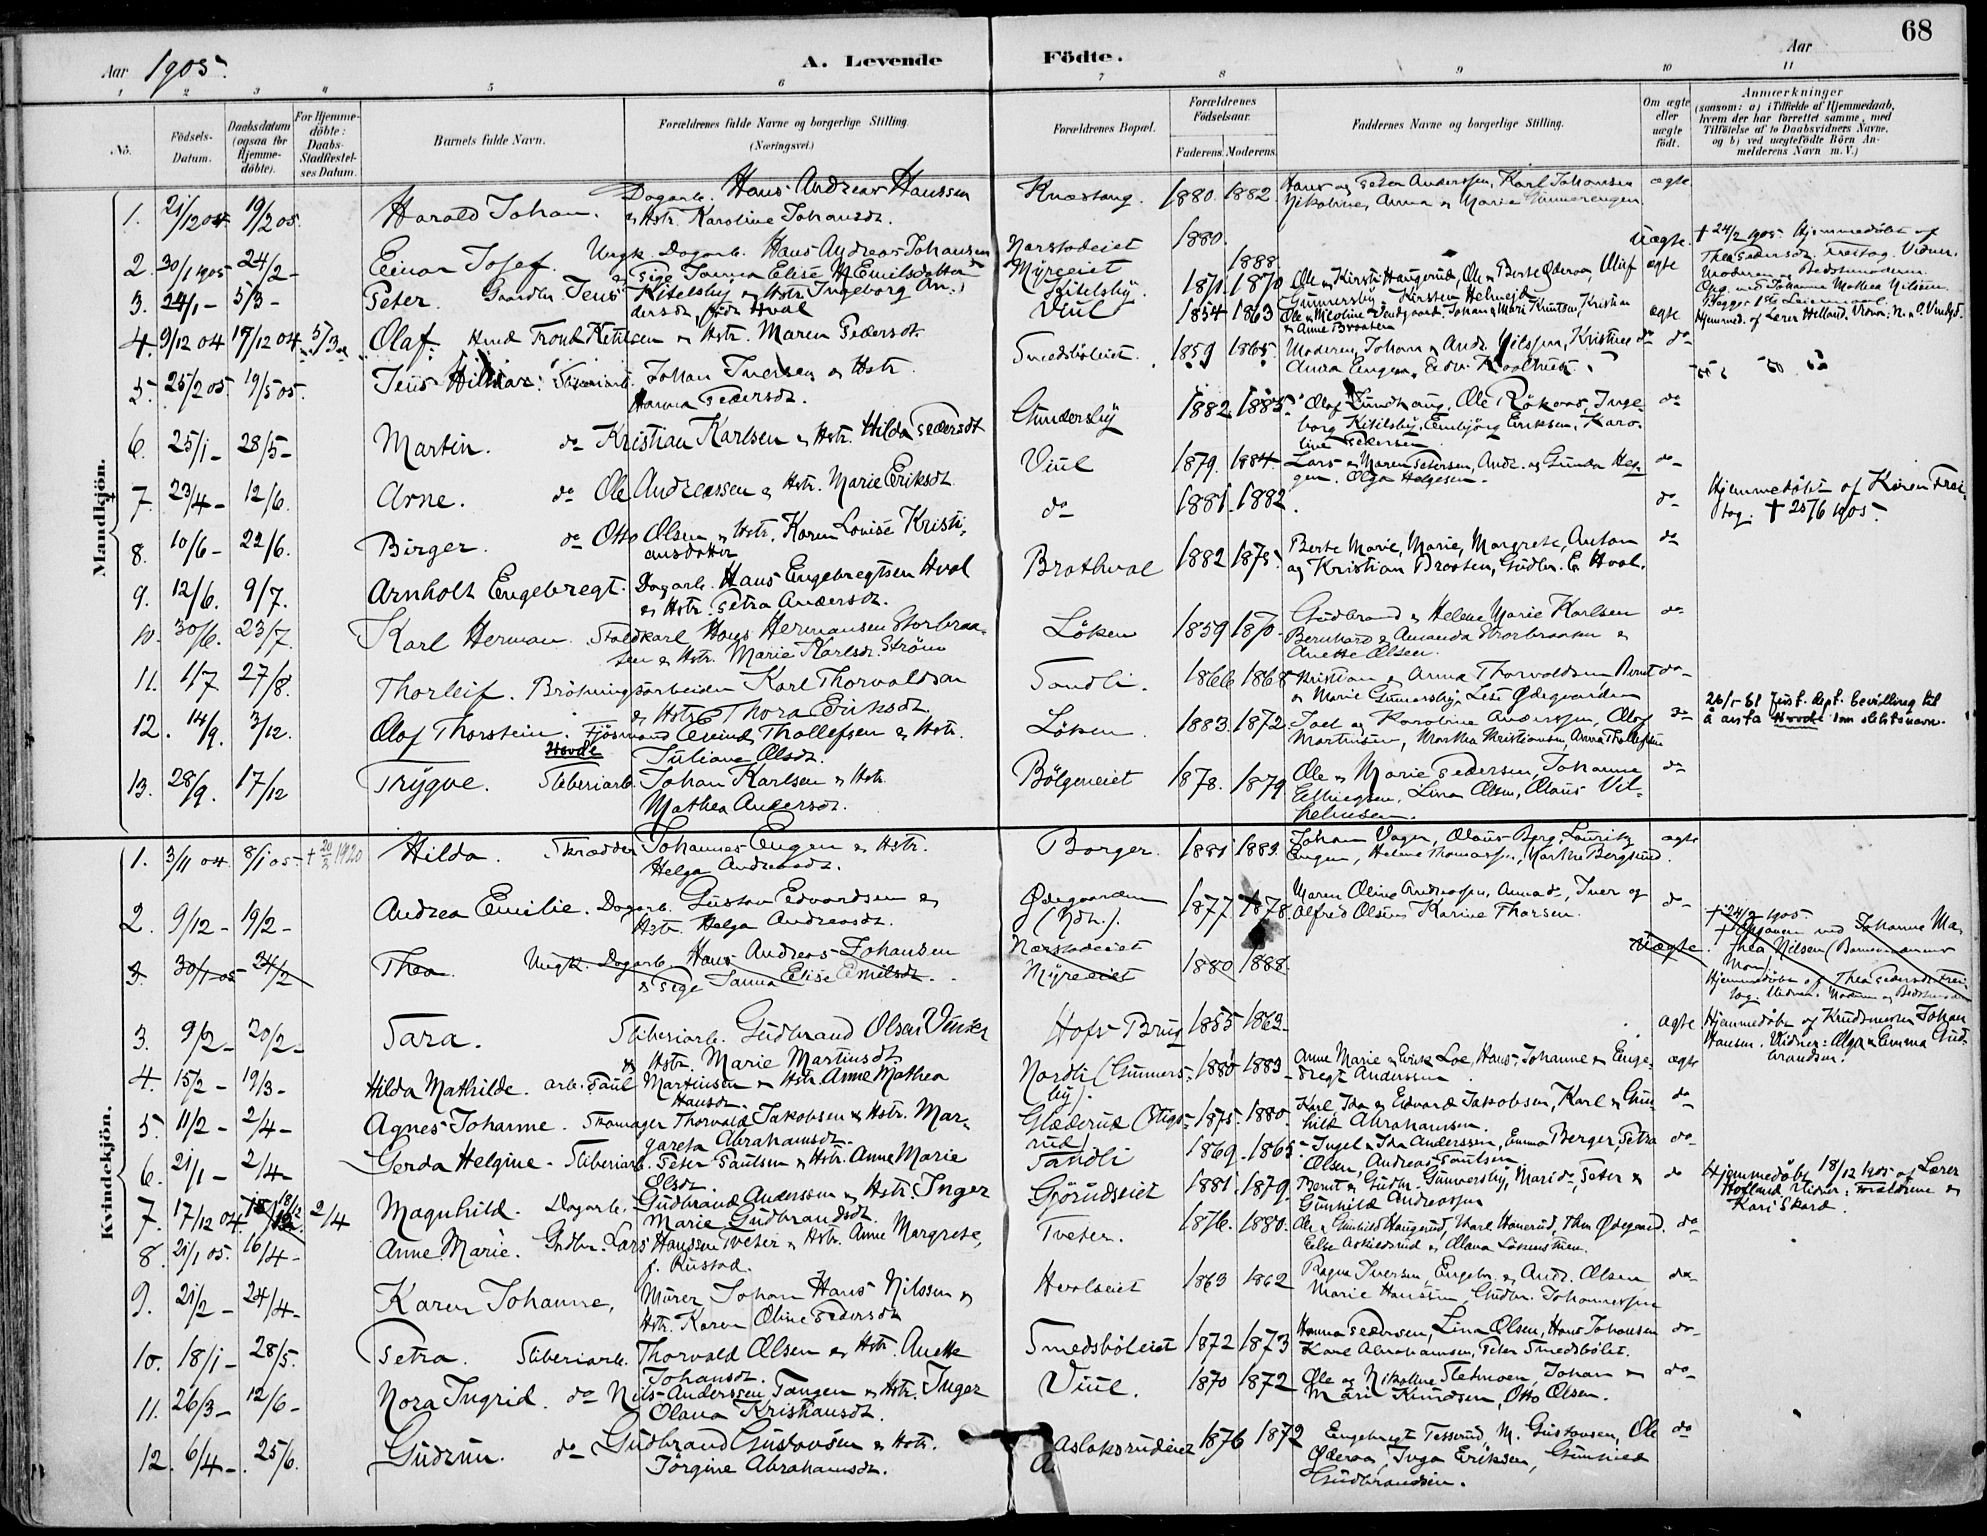 68
Aar 1905.
A. Levende Födte.
Aar
1 2 3 4 5 6 7 8 9 10 11
No.
Födsels-Datum.
Daabsdatum (ogsaa for Hjemme-döbte).
For Hjemme-döbte: Daabs-Stadfæstel-ses Datum.
Barnets fulde Navn.
Forældrenes fulde Navne og borgerlige Stilling. (Næringsvei.)
Forældrenes Bopæl.
Forældrenes Födselsaar. Faderens. Moderens.
Faddernes Navne og borgerlige Stilling.
Om ægte eller uægte födt.
Anmærkninger
(saasom: a) i Tilfælde af Hjemmedaab, hvem der har forrettet samme, med Tilföielse af to Daabsvidners Navne, og b) ved uægtefödte Börn An-melderens Navn m. V.)
Mandkjön.
1. 21/12 04 19/2 05. Harald Johan. Dagarb. Hans Andreas Hanssen
& Hstr. Karoline Johansdt. Knæstang. 1880. 1882 Hans og Peder Anderssen, Karl Johansen
Nikoline, Anna & Marie Gunnerengen ægte
2. 30/1 1905 24/2 - Einar Josef. Ungk. Dagarb. Hans Andreas Johansen
& Pige Janna Elise Emilsdatter Narstadeiet Myreeiet 1880. 1888. Uægte. † 24/2 1905. Hjemmedøbt af
Thea Pedersdt. Freitag. Vidner:
Moderen & Bedstemoderen.
Opg. ved Johanne Mathea Nilsen.
Begges 1ste Leiermaal.
3. 24/1 - 5/3 - Peter. Gaardbr. Jens Kitelsby & Hstr. Ingeborg An-
dersdt, född Hval Kitelsby. 1871. 1870 Ole & Kirsti Haugerud, Ole & Berte Øderaa, Oluf
Gunnersby & Kirsten Helmeid ægte
4. 9/12 04 17/12 04 5/3 Olaf. Hmd Trond Ketilsen & Hstr. Maren Pedersdt. Viul 1854 1863 Ole & Nicoline Vindgaard. Johan & Mari Knutsen, Kristian
& Anne Braaten ægte Hjemmed. af Lærer Helland. Vidner: N. & O. Vindgd.
5. 25/2 05 19/5 05. Jens Hilmar. Sliberiarb. Johan Iversen & Hstr.
Hanna Pedersdt. Smedsböleiet. 1859 1865. Moderen, Johan & Andr. Nilssen, Kristine
Anna Engen, Edv. Kroglund do
6. 25/1 - 28/5 - Martin. do Kristian Karlsen & Hstr. Hilda Pedersdt Gundersby 1882 1885. Olaf Lundhaug, Ole Rökeness, Inge-
borg Kitilsby, Embjörg Eriksen, Karo-
line Pedersen do
7. 23/4 - 12/6. Arne. do Ole Andreassen & Hstr. Marie Eriksdt. Viul 1879. 1884. Lars & Maren Petersen, Andr. og Gunda Hel-
gen. Olga Helgesen. do
8. 10/6 - 22/6. Birger. do Otto Olsen & Hstr. Karen Louise Kristi-
ansdatter do 1881. 1882. do Hjemmedøbt af Karen Frei-
tag. † 25/6 1905.
9. 12/6. 9/7. Arnholt Engebregt. Dagarb. Hans Engebregtsen Hval
& Hstr. Petra Andersdt. Brathval 1882 1875. Berte Marie, Marie, Margrete, Anton
og Kristian Braaten, Gudbr. E. Hval. do
10. 30/6. 23/7. Karl Herman. Staldkarl Hans Hermansen Storbraa-
ten & Hstr. Marie Karlsdt. Ström Löken 1859 1870. Gudbrand & Helene Marie Karlsen
Bernhard & Amanda Storbraaten &
Anette Olsen. do
11. 1/7 27/8. Thorleif. Brötningsarbeider Karl Thorvaldsen
& Hstr. Thora Eriksdt. Sandli. 1866 1868 Kristian & Anna Thorvaldsen Bernt
& Marie Gunnersby, Lise Ødegaarden do
12. 14/9. 3/12. Olaf Thorstein. Fjösmand Eivind Thollefsen & Hstr.
Hovde Juliane Olsdt. Löken. 1883. 1872. Joel og Karoline Anderssen, Olaf
Martinsen, Martha Kristiansen, Anna Thollefsen do 26/1-51 Just. dept. bevilling til
å anta Hovde som slektsnavn.
13. 28/9. 17/12 Trygve. Sliberiarb. Johan Karlsen & Hstr.
Mathea Andersdt. Bölgeneiet 1878. 1879 Ole & Marie Pedersen, Johanne
Ellingsen, Lina Olsen, Olaus Vil-
helmsen. do
Kvindekjön.
1. 3/11 04 8/1 05 † 20/3 1920 Hilda. Skrædder Johannes Engen & Hstr.
Helga Andreasdt. Borger. 1881 1882. Johan Vager, Olaus Berg, Lauritz
Engen, Helene Thomassen, Marthe Bergsund. ægte
2. 9/12 - 19/2 - Andrea Emilie. Dagarb. Gustav Edvardsen &
Hstr. Helga Andreasdt. Ødegaarden (Ndr.). 1877 1878 Maren Oline Andreassen, Anna do, Iver og
Alfred Olsen, Karine Thorsen. do
3. 30/1 05 24/2 Thea. Ungk. Dagarb. Hans Andreas Johansen
& Pige Janna Elise Emilsdt. Narstadeiet Myreeiet 1880 1888. Uægte. † 24/2 1905
Opgaven ved Johanne Ma-
thea Nilsen (Barnemoderens
Mor)
Hjemmedøbt af Thea Pedersdt Frei-
tag. Vidner: Moderen & Bedstemoderen
3. 9/2 - 20/2 - Sara. Sliberiarb. Gudbrand Olsen Viusen
& Hstr. Marie Martinsdt. Hofs Brug 1855 1862 ægte Hjemmedøbt af Krudmester Johan
Hansen. Vidner: Olga & Emma Gud-
brandsen.
4. 15/2 - 19/3 - Hilda Mathilde. arb. Paul Martinsen & Hstr. Anne Mathea
Hansdt. Nordli (Gunners-
by). 1880 1883 Anne Marie & Eirik Loe, Hans & Johanne & Enge-
bregt Anderssen ægte
5. 11/2 - 2/4 - Agnes Johanne. Skomager Thorvald Jakobsen & Hstr. Mar-
gareta Abrahamsdt. Glæderud (Stigs-
rud) 1875. 1880 Karl, Ida & Edvard Jakobsen, Karl & Gun-
hild Abrahamsen. do
6. 21/1 - 2/4 - Gerda Helgine. Sliberiarb. Peter Paulsen & Hstr. Anne Marie
Olsdt. Sandli 1869. 1865. Ingel & Ida Anderssen, Emma Berger, Petra
Olsen, Andreas Paulsen do
7. 17/12 04. 18/12 2/4 Magnhild. Dagarb. Gudbrand Anderssen & Hstr. Inger
Marie Gudbrandsdt. Gjörudseiet 1881. 1879. Bernt & Gudbr. Gunnersby, Mari do, Peter &
Gunhild Andreassen do Hjemmedøbt 18/12 1905 af Lærer
Hofland. Vidner: Forældrene &
Kari Skard.
8. 21/1 05. 16/4 - Anne Marie. Grdbr. Lars Hanssen Tveter & Hstr. Anne Margrete,
f. Rustad. Tveter. 1876. 1880. Ole & Gunhild Haugerud, Karl Hanerud, Thea Ødegaard.
Else Askildsrud & Olava Lökenstuen. do
9. 21/2 - 24/4 - Karen Johanne, Murer Johan Hans Nilssen &
Hstr. Karen Oline Pedersdt Hvalseiet 1863 1862 Ragna Iversen, Engebr. & Andr. Olsen
Marie Hanssen, Gudbr. Johannessen do
10. 18/1 - 28/5. Petra. Sliberiarb. Thorvald Olsen & Hstr. Anette
Johansdt. Smedsböleiet 1872 1873 Hanna Pedersen, Lina Olsen, Hans Johansen
Karl Abrahamsen, Peter Smedsbölet. do
11. 26/3 - 12/6 - Nora Ingrid. do Nils Anderssen Tangen & Hstr. Inger
Olava Kristiansdt. Viul. 1870 1872 Ole og Nikoline Stetmoen, Johan &
Mari Knudsen, Otto Olsen. do
12. 6/4 - 25/6. Gudrun. do Gudbrand Gustavsen & Hstr.
Jörgine Abrahamsdt. Aslaksrudeiet 1876 1872 Engebregt Tesserud, M. Gustavsen, Ole
Øderaa, Inga Eriksen, Gunhild
Gudbrandsen. do